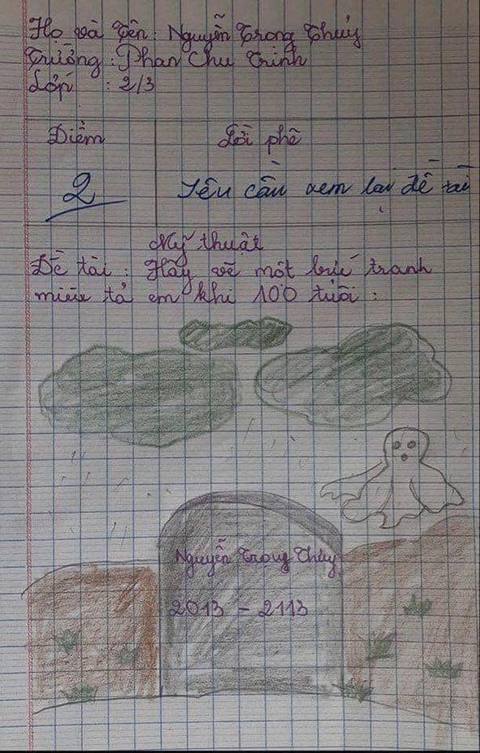 Họ và Tên: Nguyễn Trọng Thúy
Trường: Phan Chu Trinh
Lớp : 2/3
Điểm
Lời phê
2
Yêu cầu xem lại đề tài
Mỹ thuật
Đề tài: Hãy vẽ một bức tranh
miêu tả em khi 100 tuổi:
Nguyễn Trọng Thúy
2013 - 2113